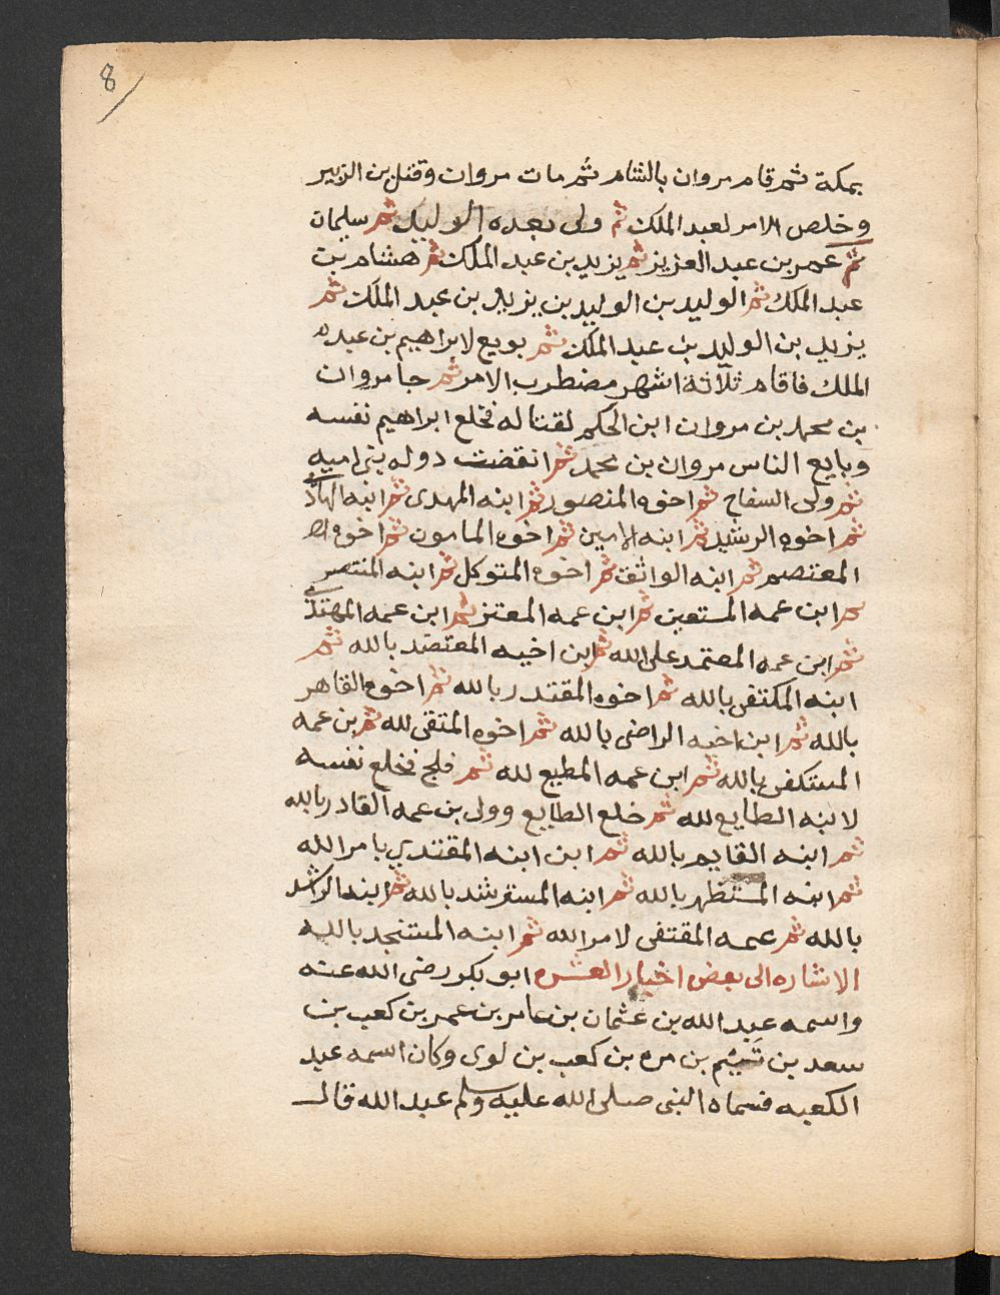 8
بمكة ثم قام مروان بالشام ثم مات مروان وقتل بن الزبير
وخلص الامر لعبد الملك ثم ولى بعده الوليد ثم سليمان
ثم عمر بن عبد العزيز ثم يزيد بن عبد الملك ثم هشام بن
عبد الملك ثم الوليد بن الوليد بن يزيد بن عبد الملك ثم
يزيد بن الوليد بن عبد الملك ثم بويع لابراهيم بن عبده
الملك فاقام ثلاثة اشهر مضطرب الامر ثم جا مروان
بن محمد بن مروان ابن الحكم لقتاله فخلع ابراهيم نفسه
وبايع الناس مروان بن محمد ثم انقضت دوله بنى اميه
ثم ولى السفاح ثم اخوه المنصور ثم ابنه المهدى ثم ابنه الهادى
ثم اخوه الرشيد ثم ابنه الامين ثم اخوه المامون ثم اخوه
المعتصم ثم ابنه الواثق ثم اخوه المتوكل ثم ابنه المنتصر
ثم ابن عمه المستعين ثم ابن عمه المعتز ثم ابن عمه المهتدى
ثم ابن عمه المعتمد على الله ثم ابن اخيه المعتضد بالله ثم
ابنه المكتفى بالله ثم اخوه المقتدر بالله ثم اخوه القاهر
بالله ثم ابن اخيه الراضى بالله ثم اخوه المتقى لله ثم بن عمه
المستكفى بالله ثم ابن عمه المطيع لله ثم فلج فخلع نفسه
لابنه الطايع لله ثم خلع الطايع وولى بن عمه القادر بالله
ثم ابنه القايم بالله ثم ابن ابنه المقتدي بامر الله
ثم ابنه المستظهر بالله ثم ابنه المسترشد بالله ثم ابنه الراشد
بالله ثم عمه المقتفى لامر الله ثم ابنه المستنجد بالله
الاشاره الى بعض اخبار العشره ابو بكر رضى الله عنه
واسمه عبد الله بن عثمان بن عامر بن عمر بن كعب بن
سعد بن تيم بن مره بن كعب بن لوى وكان اسمه عبد
الكعبه فسماه النبى صلى الله عليه وسلم عبد الله قال